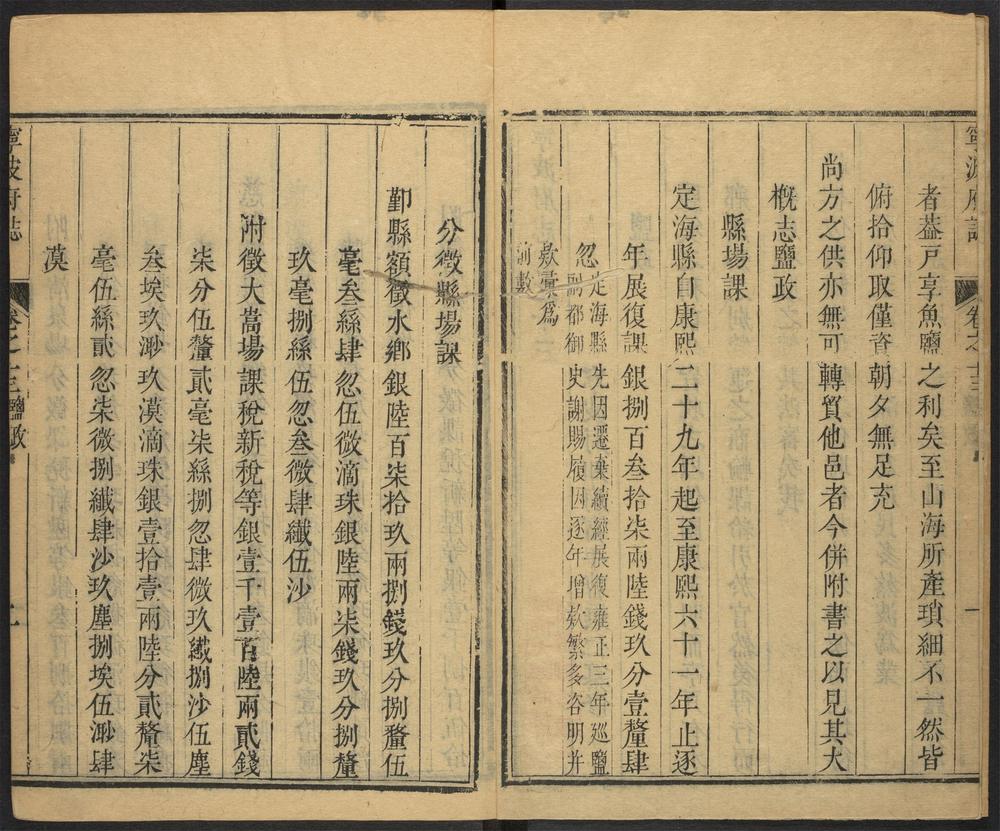 寧波府志
卷之十三
一
者葢戸享魚鹽之利矣至山海所產瑣細不一然皆
俯拾仰取僅資朝夕無足充
尚方之供亦無可轉貿他邑者今併附書之以見其大
槪志鹽政
縣場課
定海縣自康熙二十九年起至康熙六十一年止逐
年展復課銀捌百叁拾柒兩陸錢玖分壹釐肆
忽
定海縣先因遷棄續經展復雍正三年巡鹽
副都御史謝賜履因逐年增欵繁多咨明并
欵彙爲
前數
分徵縣場課
鄞縣額徵水鄉銀陸百柒拾玖兩捌錢玖分捌釐伍
毫叁絲肆忽伍微滴珠銀陸兩柒錢玖分捌釐
玖毫捌絲伍忽叁微肆纖伍沙
附徵大嵩場課稅新稅等銀壹千壹百陸兩貳錢
柒分伍釐貳毫柒絲捌忽肆微玖纖捌沙伍塵
叁埃玖渺玖漠滴珠銀壹拾壹兩陸分貳釐柒
毫伍絲貳忽柒微捌纖肆沙玖塵捌埃伍渺肆
漠
寧波府志
卷之十三鹽政